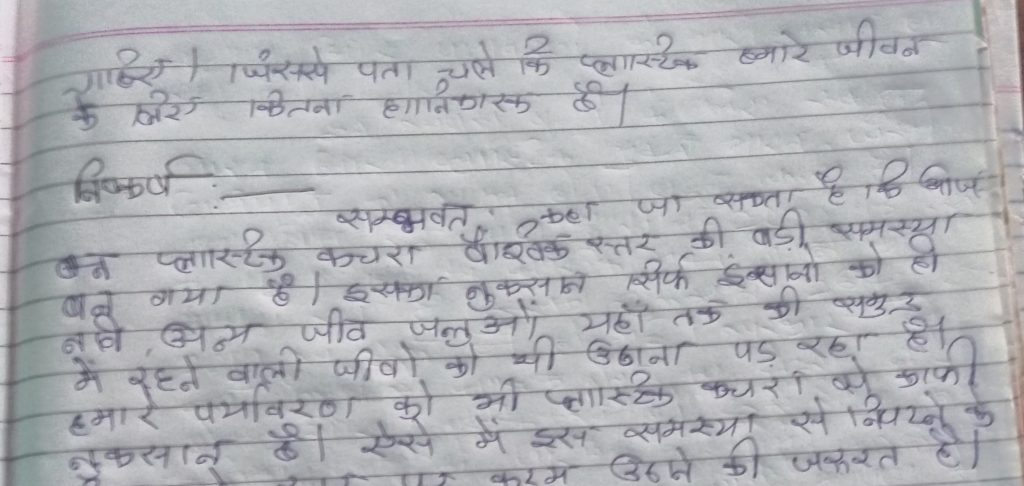 चाहिए। जिससे पता चले कि प्लास्टिक हमारे जीवन
के लिए कितना हानिकारक है।
निष्कर्ष :-
सम्भवत: कहा जा सकता है कि आज
प्लास्टिक कचरा वैश्विक स्तर की बड़ी समस्या
बन गया है। इसका नुकसान सिर्फ इंसानो को ही
नही अन्य जीव जन्तुओं, यहाँ तक की समुद्र
में रहने वाली जीवो को भी उठाना पड़ रहा है।
हमारे पर्यावरण को भी प्लास्टिक कचरा से काफी
नुकसान है। ऐसे में इस समस्या से निपटने के
पर कदम उठाने की जरूरत है।